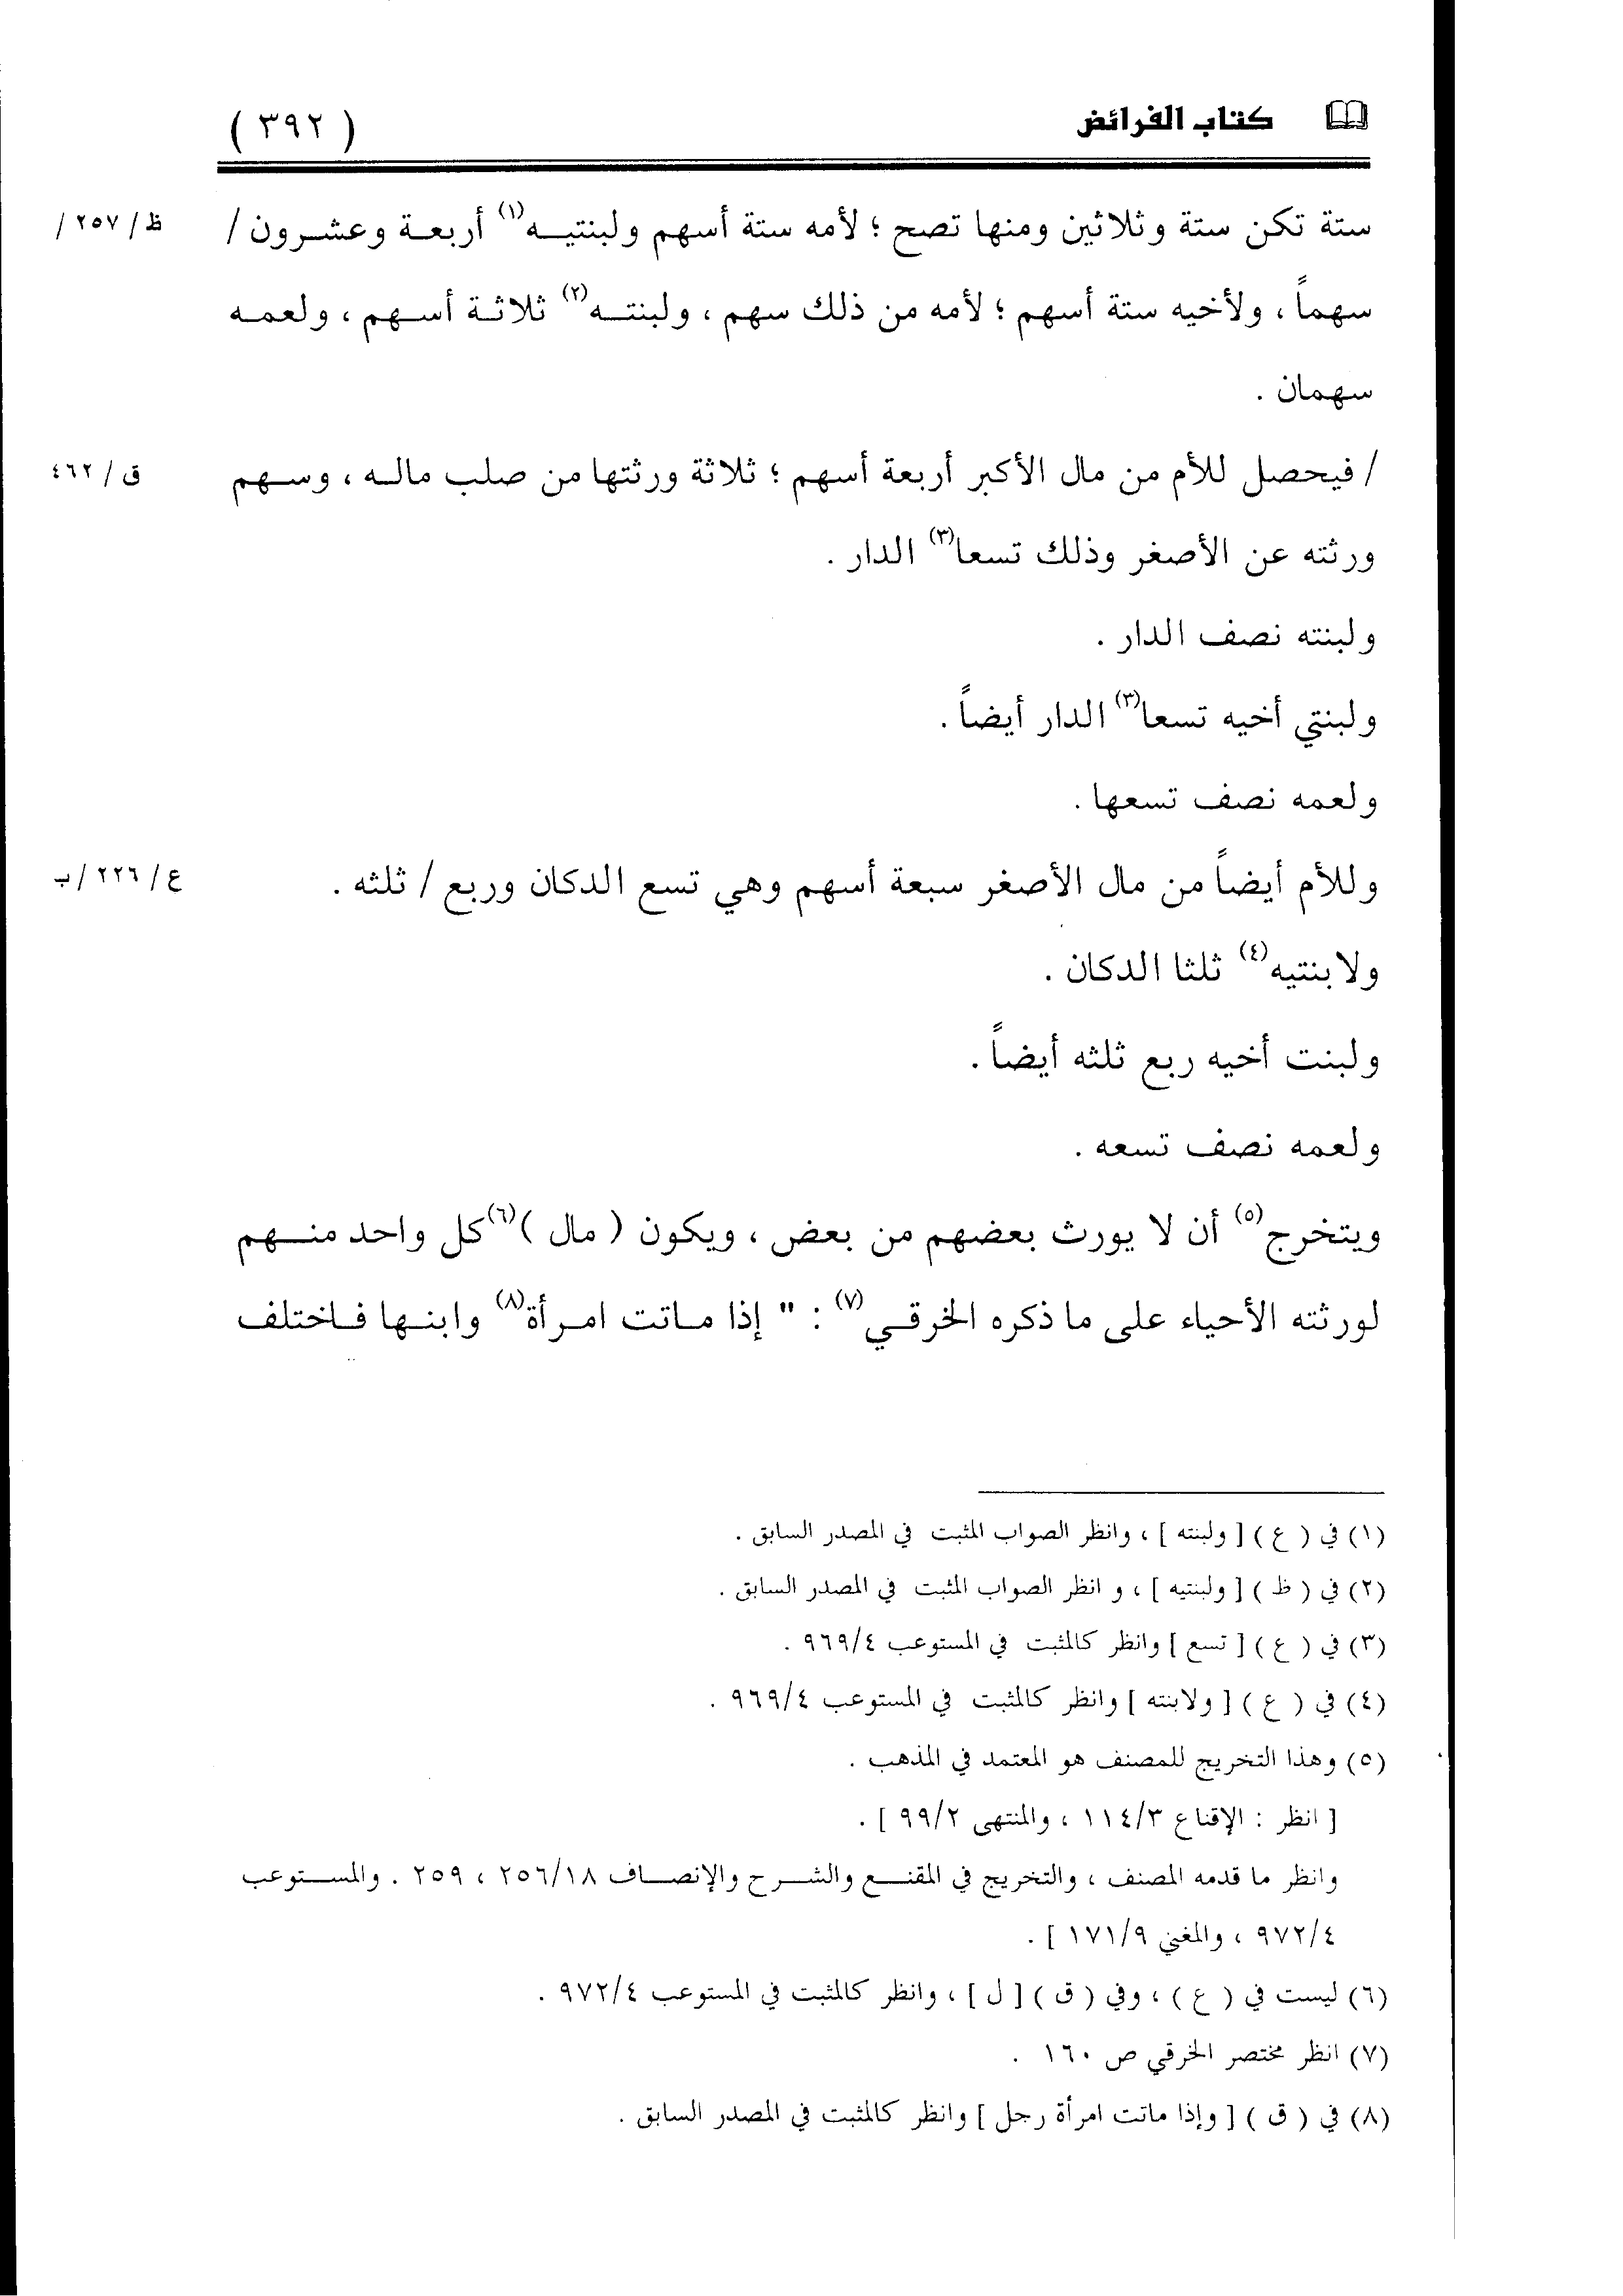 كتاب الفرائض
( ٣٩٢ )
ستة تكن ستة وثلاثين ومنها تصح ؛ لأمه ستة أسهم ولبنتيه(١) أربعة وعشرون /
ظ / ٢٥٧ /
سهماً ، ولأخيه ستة أسهم ؛ لأمه من ذلك سهم ، ولبنته(٢) ثلاثة أسهم ، ولعمه
سهمان .
/ فيحصل للأم من مال الأكبر أربعة أسهم ؛ ثلاثة ورثتها من صلب ماله ، وسهم
ق / ٤٦٢
ورثته عن الأصغر وذلك تسعا(٣) الدار .
ولبنته نصف الدار .
ولبنتي أخيه تسعا(٣) الدار أيضاً .
ولعمه نصف تسعها .
وللأم أيضاً من مال الأصغر سبعة أسهم وهي تسع الدكان وربع / ثلثه .
ع / ٢٢٦ /ب
ولابنتيه(٤) ثلثا الدكان .
ولبنت أخيه ربع ثلثه أيضاً .
ولعمه نصف تسعه .
ويتخرج(٥) أن لا يورث بعضهم من بعض ، ويكون ( مال )(٦) كل واحد منهم
لورثته الأحياء على ما ذكره الخرقي(٧) : " إذا ماتت امرأة(٨) وابنها فاختلف
(١) في ( ع ) [ ولبنته ] ، وانظر الصواب المثبت في المصدر السابق .
(٢) في ( ظ ) [ ولبنتيه ] ، و انظر الصواب المثبت في المصدر السابق .
(٣) في ( ع ) [ تسع ] وانظر كالمثبت في المستوعب ٩٦٩/٤ .
(٤) في ( ع ) [ ولابنته ] وانظر كالمثبت في المستوعب ٩٦٩/٤ .
(٥) وهذا التخريج للمصنف هو المعتمد في المذهب .
[ انظر : الإقناع ١١٤/٣ ، والمنتهى ٩٩/٢ ] .
وانظر ما قدمه المصنف ، والتخريج في المقنع والشرح والإنصاف ٢٥٦/١٨ ، ٢٥٩ . والمستوعب
٩٧٢/٤ ، والمغني ١٧١/٩ ] .
(٦) ليست في ( ع ) ، وفي ( ق ) [ ل ] ، وانظر كالمثبت في المستوعب ٩٧٢/٤ .
(٧) انظر مختصر الخرقي ص ١٦٠ .
(٨) في ( ق ) [ وإذا ماتت امرأة رجل ] وانظر كالمثبت في المصدر السابق .